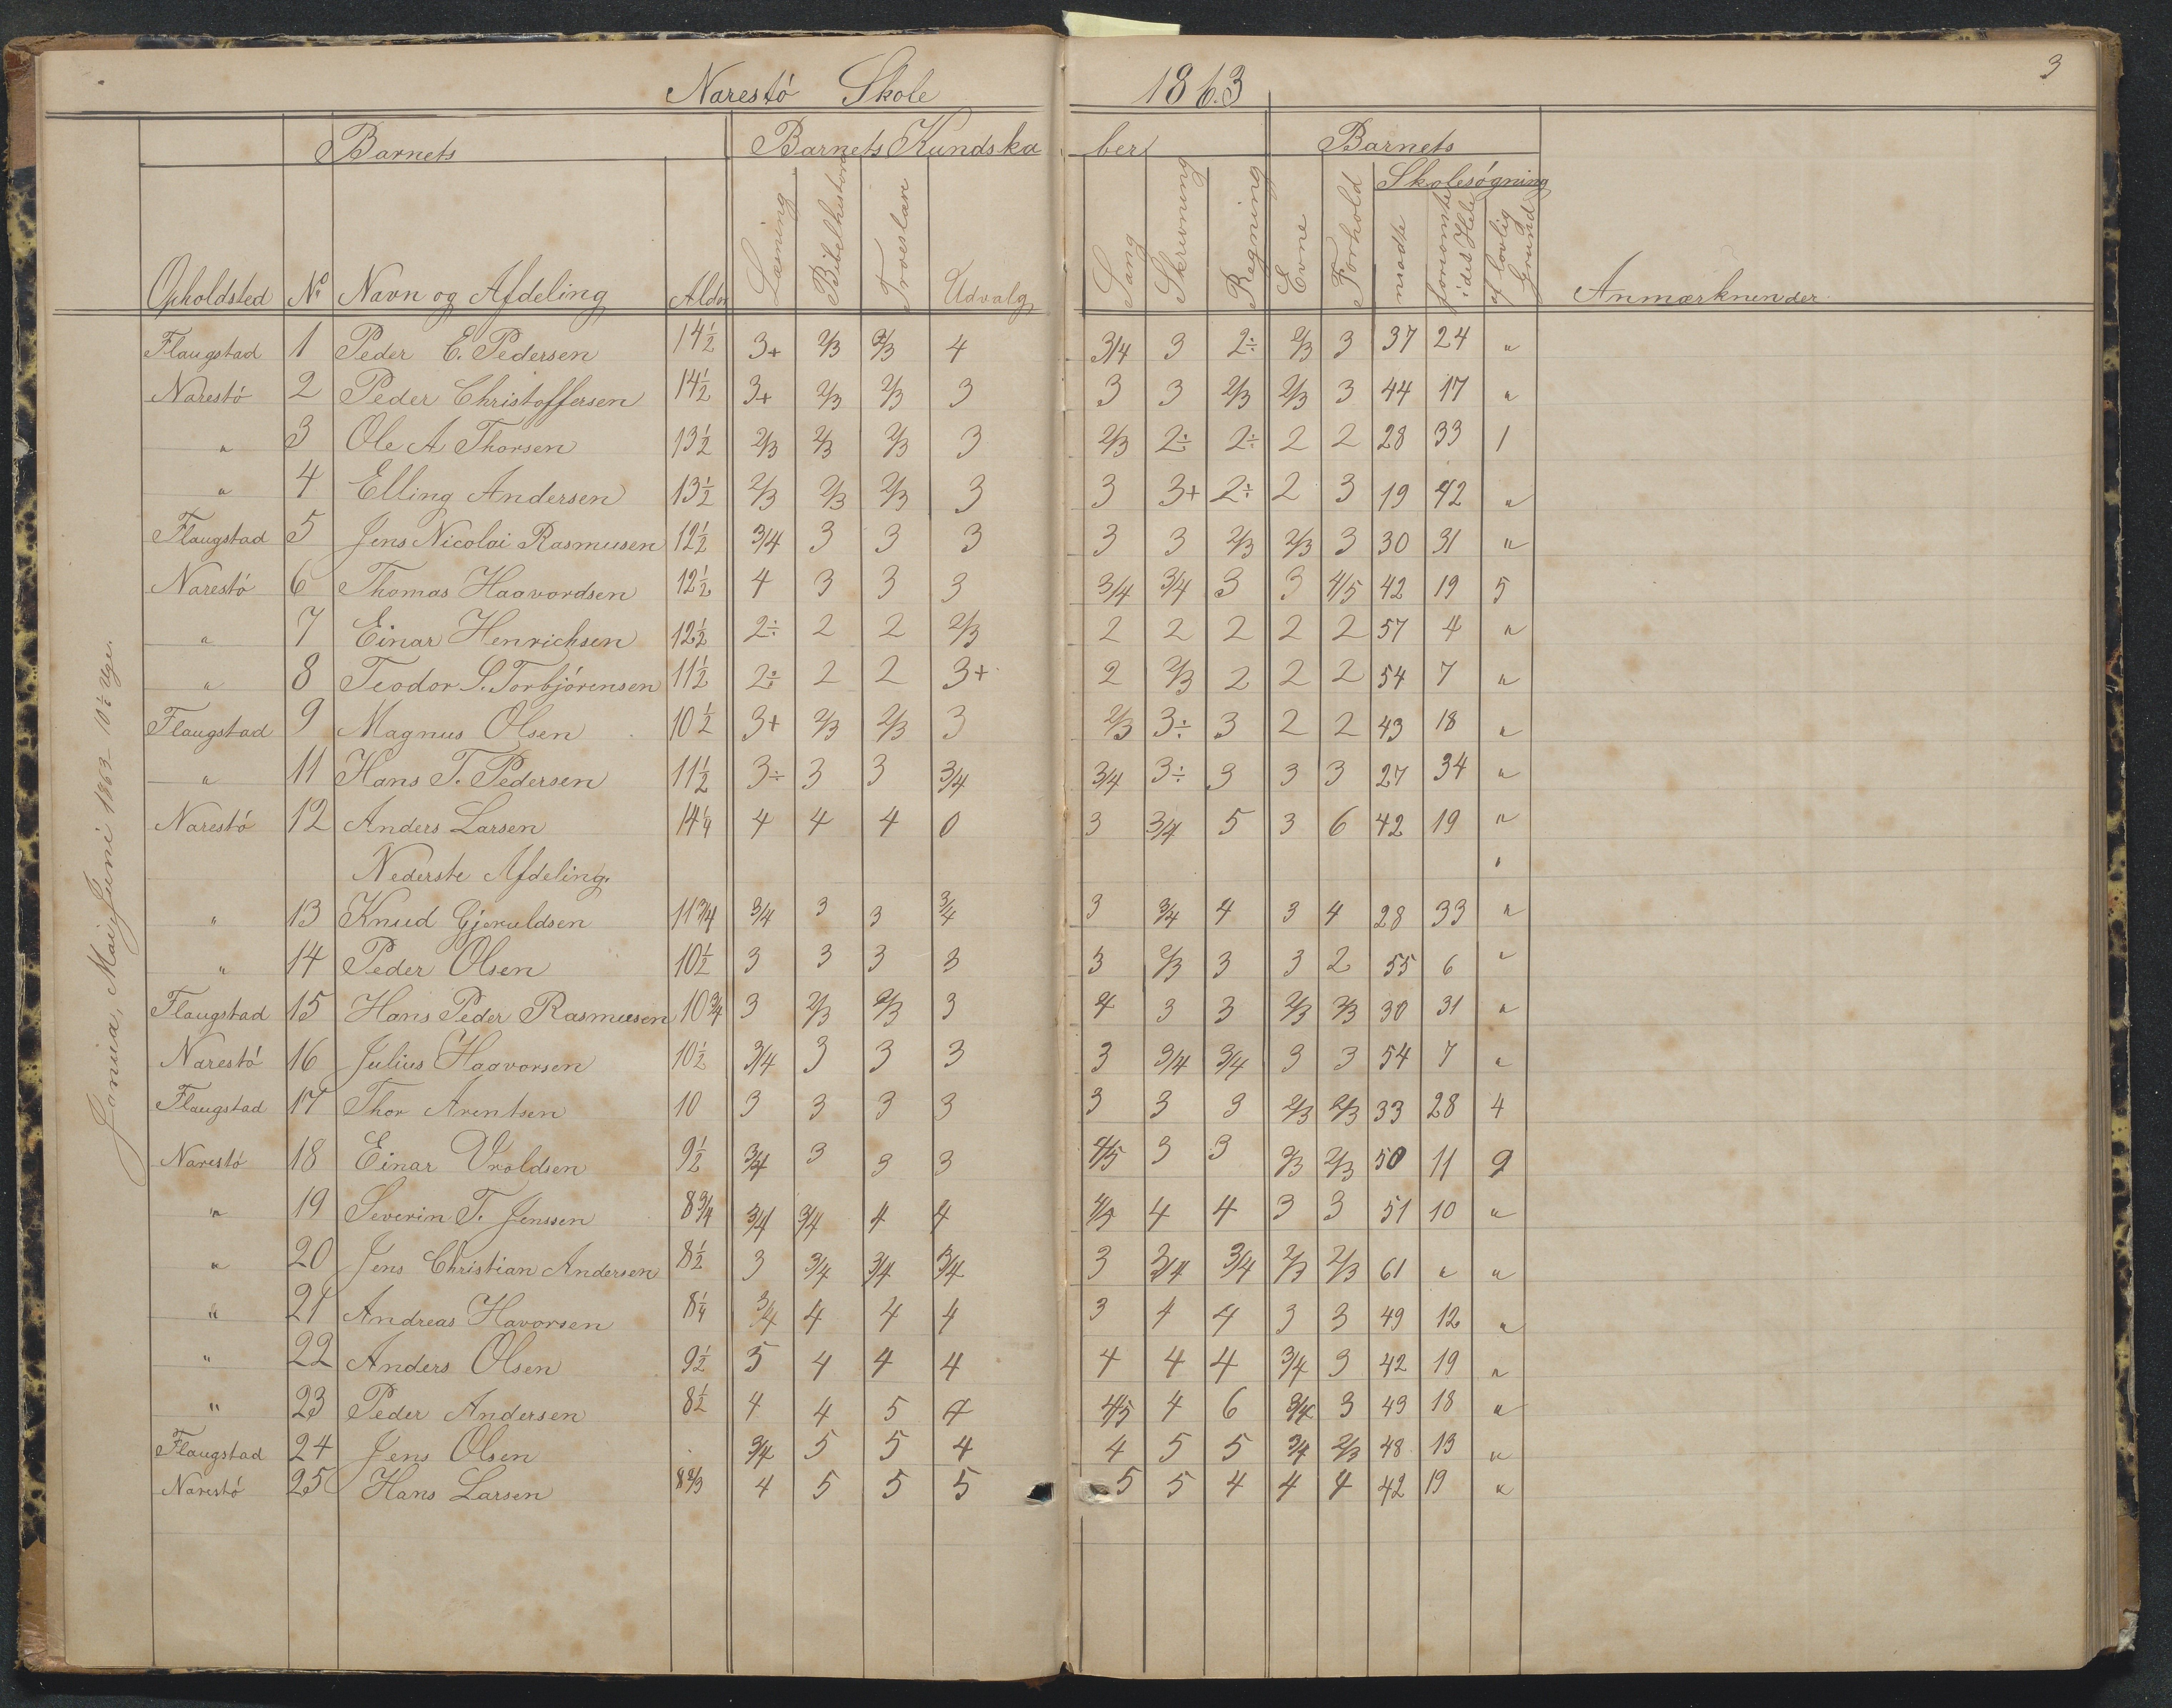 3
Narestö Skole 1863
Barnets Barnets Kundskaber Barnets
Skolesøgning
Opholdsted No Navn og Afdeling Alder Læsning Bibelhistorie Troeslære Udvalg Sang Skrivning Regning Evne Forhold mødte forsømte i det Hele af lovlig Grund Anmærkninder
Flaugstad 1 Peder E. Pedersen 14½ 3+ 2/3 2/3 4 3/4 3 2÷ 2/3 3 37 24 "
Narestö 2 Peder Christoffersen 14½ 3+ 2/3 2/3 3 3 3 2/3 2/3 3 44 17 "
" 3 Ole A Thorsen 13½ 2/3 2/3 2/3 3 2/3 2÷ 2÷ 2 2 28 33 1
" 4 Elling Andersen 13½ 2/3 2/3 2/3 3 3 3+ 2÷ 2 3 19 42 "
Flaugstad 5 Jens Nicolai Rasmussen 12½ 3/4 3 3 3 3 3 2/3 2/3 3 30 31 "
Narestö 6 Thomas Haavordsen 12½ 4 3 3 3 3/4 3/4 3 3 4/5 42 19 5
" 7 Einar Henrichsen 12½ 2÷ 2 2 2/3 2 2 2 2 2 57 4 "
" 8 Teodor S. Torbjörensen 11½ 2÷ 2 2 3+ 2 2/3 2 2 2 54 7 "
Flaugstad 9 Magnus Olsen 10½ 3+ 2/3 2/3 3 2/3 3÷ 3 2 2 43 18 "
" 11 Hans T. Pedersen 11½ 3÷ 3 3 3/4 3/4 3÷ 3 3 3 27 34 "
Narestö 12 Anders Larsen 14¼ 4 4 4 0 3 3/4 5 3 6 42 19 "
Nederste Afdeling. "
" 13 Knud Gjeruldsen 11 3/4 3/4 3 3 3/4 3 3/4 4 3 4 28 33 "
" 14 Peder Olsen 10½ 3 3 3 3 3 2/3 3 3 2 55 6 "
Flaugstad 15 Hans Peder Rasmussen 10 3/4 3 2/3 2/3 3 4 3 3 2/3 2/3 30 31 "
Narestö 16 Julius Haavorsen 10½ 3/4 3 3 3 3 3/4 3/4 3 3 54 7 "
Flaugstad 17 Thor Arentsen 10 3 3 3 3 3 3 3 2/3 2/3 33 28 4
Narestö 18 Einar Vroldsen 9½ 3/4 3 3 3 4/5 3 3 2/3 2/3 50 11 9
" 19 Severin T. Jenssen 8 3/4 3/4 3/4 4 4 4/5 4 4 3 3 51 10 "
" 20 Jens Christian Andersen 8½ 3 3/4 3/4 3/4 3 3/4 3/4 2/3 2/3 61 " "
" 21 Andreas Havorsen 8¼ 3/4 4 4 4 3 4 4 3 3 49 12 "
" 22 Anders Olsen 9½ 5 4 4 4 4 4 4 3/4 3 42 19 "
" 23 Peder Andersen 8½ 4 4 5 4 4/5 4 6 3/4 3 43 18 "
Flaugstad 24 Jens Olsen 3/4 5 5 4 4 5 5 3/4 2/3 48 13 "
Narestö 25 Hans Larsen 8 2/3 4 5 5 5 5 5 4 4 4 42 19 "
Januea, Mai, Juni 1863 10½ Uge.